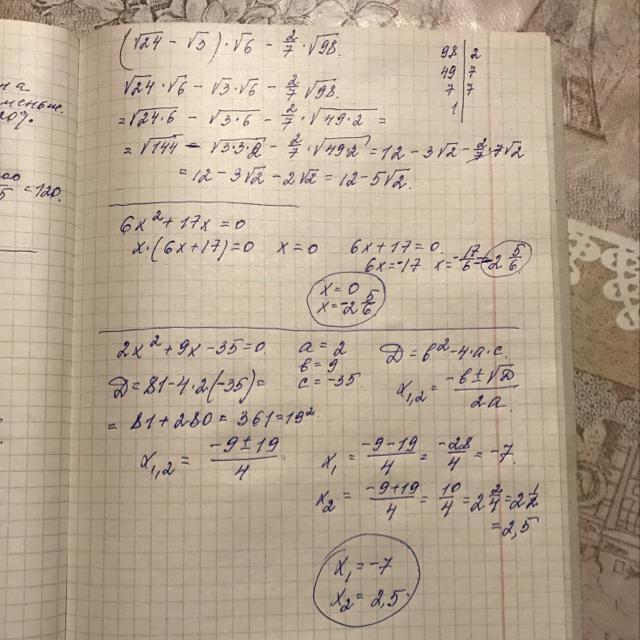 на
меньше.
20%.
= 120.
(√24 - √3)·√6 - 2/7·√98.
98 | 2
49 | 7
7 | 7
1 |
√24·√6 - √3·√6 - 2/7√98.
= √24·6 - √3·6 - 2/7·√49·2 =
= √144 - √3·3·2 - 2/7·√49·2 = 12 - 3√2 - 2/7·7√2
= 12 - 3√2 - 2√2 = 12 - 5√2.
6x² + 17x = 0
x·(6x+17)=0 x=0 6x+17=0
6x=-17 x=-17/6=-2 5/6
x=0
x=-2 5/6
2x² + 9x - 35 = 0 a = 2 D = b² - 4·a·c.
b = 9
D = 81 - 4·2(-35) = c = -35. x₁,₂ = -b±√D/2a
= 81 + 280 = 361 = 19².
x₁,₂ = -9±19/4 x₁ = -9-19/4 = -28/4 = -7.
x₂ = -9+19/4 = 10/4 = 2 2/4 = 2 1/2
= 2,5
x₁ = -7
x₂ = 2,5.